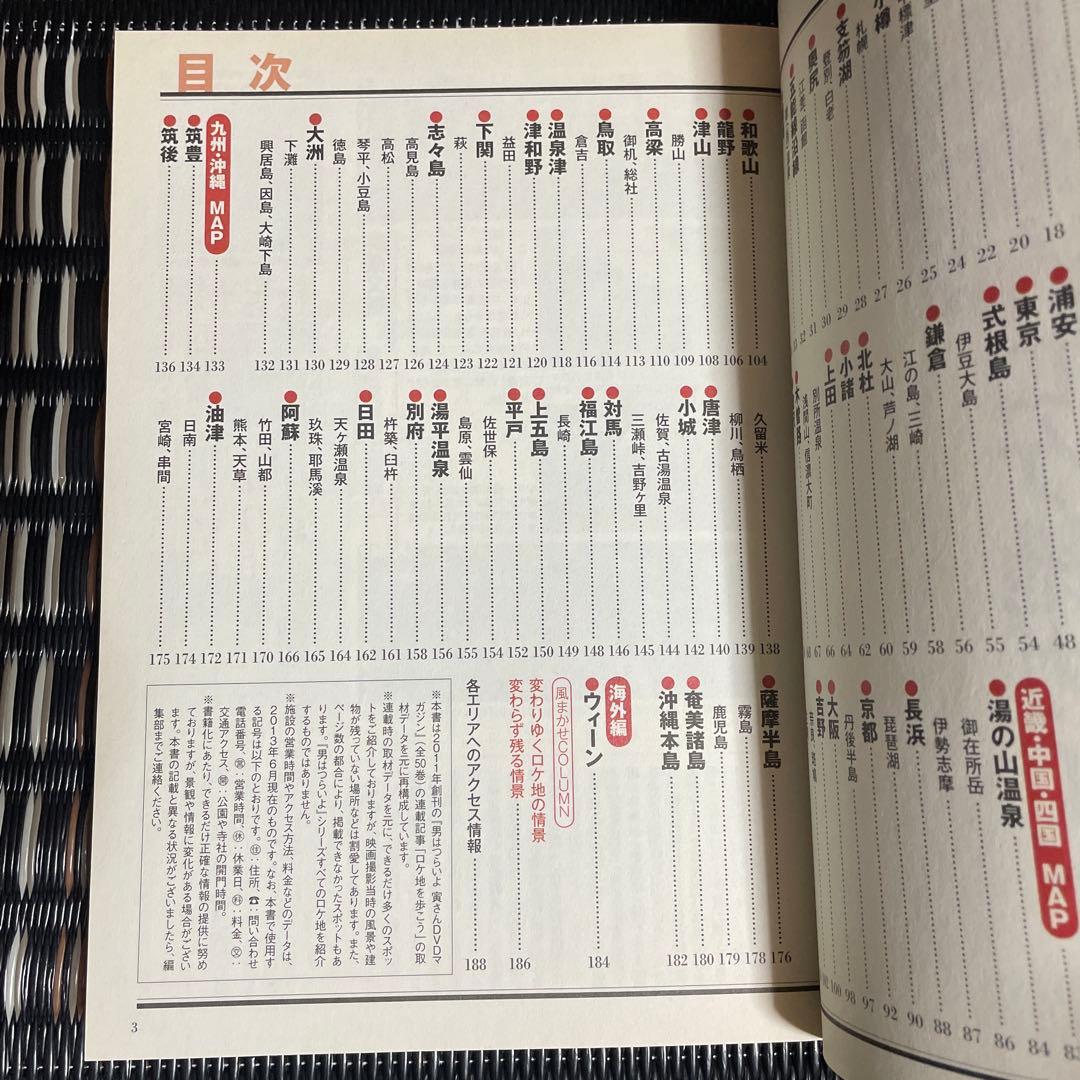 標津
札幌
支笏湖
登別、白老
奥尻
18
20
22
24
25
26
27
28
29
30
31
32
浦安
東京
式根島
伊豆大島
鎌倉
江の島、三崎
大山、芦ノ湖
北杜
小諸
上田
別所温泉
浅間山、信濃大町
木曽路
48
54
55
56
58
59
60
62
64
66
67
68
近畿・中国・四国 MAP
湯の山温泉
御在所岳
伊勢志摩
長浜
琵琶湖
京都
丹後半島
大阪
吉野
84
86
87
88
90
92
97
98
100
目次
和歌山 104
龍野 106
津山 108
勝山 109
高梁 110
御机、総社 113
鳥取 114
倉吉 116
温泉津 118
津和野 120
益田 121
下関 122
萩 123
志々島 124
高見島 126
高松 127
琴平、小豆島 128
徳島 129
大洲 130
下灘 131
興居島、因島、大崎下島 132
九州・沖縄 MAP 133
筑豊 134
筑後 136
久留米 138
柳川、鳥栖 139
唐津 140
小城 142
佐賀、古湯温泉 144
三瀬峠、吉野ヶ里 145
対馬 146
福江島 148
長崎 149
上五島 150
平戸 152
佐世保 154
島原、雲仙 155
湯平温泉 156
別府 158
杵築、臼杵 161
日田 162
天ヶ瀬温泉 164
玖珠、耶馬溪 165
阿蘇 166
竹田、山都 170
熊本、天草 171
油津 172
日南 174
宮崎、串間 175
薩摩半島 176
霧島 178
鹿児島 179
奄美諸島 180
沖縄本島 182
海外編
ウィーン 184
風まかせCOLUMN
変わりゆくロケ地の情景
変わらず残る情景 186
各エリアへのアクセス情報 188
※本書は2011年創刊の『男はつらいよ 寅さんDVDマ
ガジン』(全50巻)の連載記事「ロケ地を歩こう」の取
材データを元に再構成しています。
※連載時の取材データを元に、できるだけ多くのスポッ
トをご紹介しておりますが、映画撮影当時の風景や建
物が残っていない場所などは割愛してあります。また、
ページ数の都合により、掲載できなかったスポットもあ
ります。『男はつらいよ』シリーズすべてのロケ地を紹介
するものではありません。
※施設の営業時間やアクセス方法、料金などのデータは、
2013年6月現在のものです。なお、本書で使用す
る記号は以下のとおりです。㊟:住所、☎:問い合わせ
電話番号、㊠:営業時間、㊡:休業日、㊮:料金、㊋:
交通アクセス、㊐:公園や寺社の開門時間。
※書籍化にあたり、できるだけ正確な情報の提供に努め
ておりますが、景観や情報に変化がある場合がござい
ます。本書の記載と異なる状況がございましたら、編
集部までご連絡ください。
3